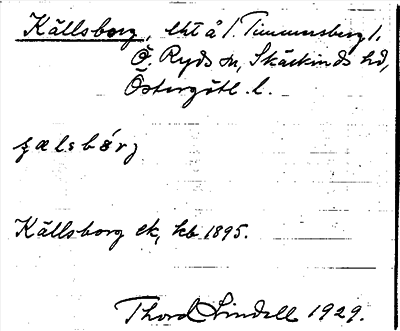 Källsborg, lht å 1/1 Timmersberg 1,
Ö. Ryds sn, Skärkinds hd,
Östergötl. l.
ɕælsbårj
Källsborg ek, kb 1895.
Thord Lindell 1929.